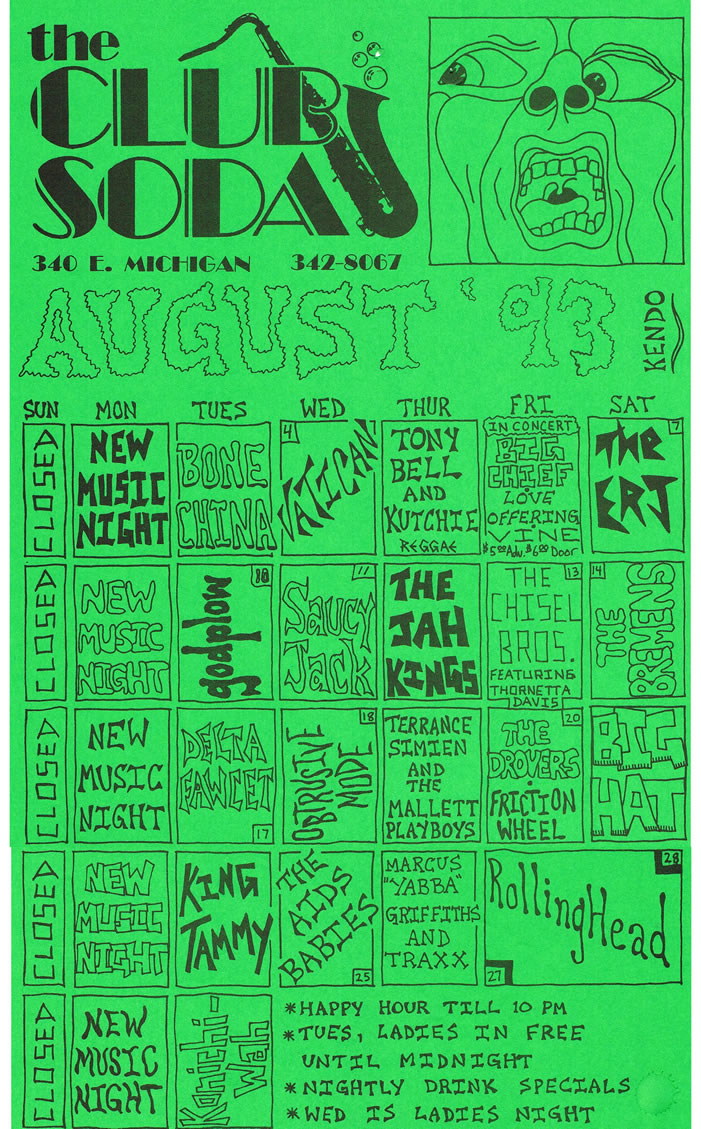 the
CLUB
SODA
340 E. MICHIGAN 342-8067
AUGUST '93
KENDO
SUN MON TUES WED THUR FRI SAT
CLOSED
NEW
MUSIC
NIGHT
BONE
CHINA
4
VATICAN
TONY
BELL
AND
KUTCHIE
REGGAE
IN CONCERT
BIG
CHIEF
LOVE
OFFERING
VINE
$5.00 Adv. $6.00 Door
7
THE
ERJ
CLOSED
NEW
MUSIC
NIGHT
10
godplow
11
Saucy
Jack
THE
JAH
KINGS
13
THE
CHISEL
BROS.
FEATURING
THORNETTA
DAVIS
14
THE
BREMENS
CLOSED
NEW
MUSIC
NIGHT
DELTA
FAWCET
17
18
OBTRUSIVE
MODE
TERRANCE
SIMIEN
AND
THE
MALLETT
PLAYBOYS
20
THE
DROVERS
FRICTION
WHEEL
BIG
HAT
CLOSED
NEW
MUSIC
NIGHT
KING
TAMMY
THE
AIDS
BABIES
25
MARCUS
"YABBA"
GRIFFITHS
AND
TRAXX
28
RollingHead
27
CLOSED
NEW
MUSIC
NIGHT
Konichi-
Wah
*HAPPY HOUR TILL 10 PM
*TUES, LADIES IN FREE
UNTIL MIDNIGHT
*NIGHTLY DRINK SPECIALS
*WED IS LADIES NIGHT